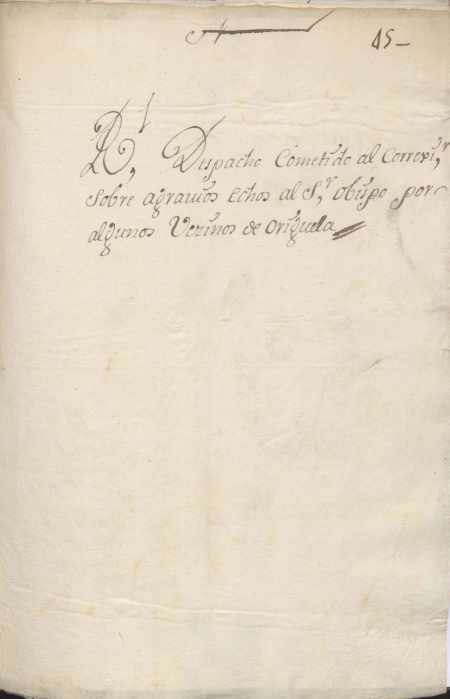 45-
R.l Despacho Cometido al Correxi.r
Sobre agravios Echos al S.r obispo por
algunos Vezinos de Origuela